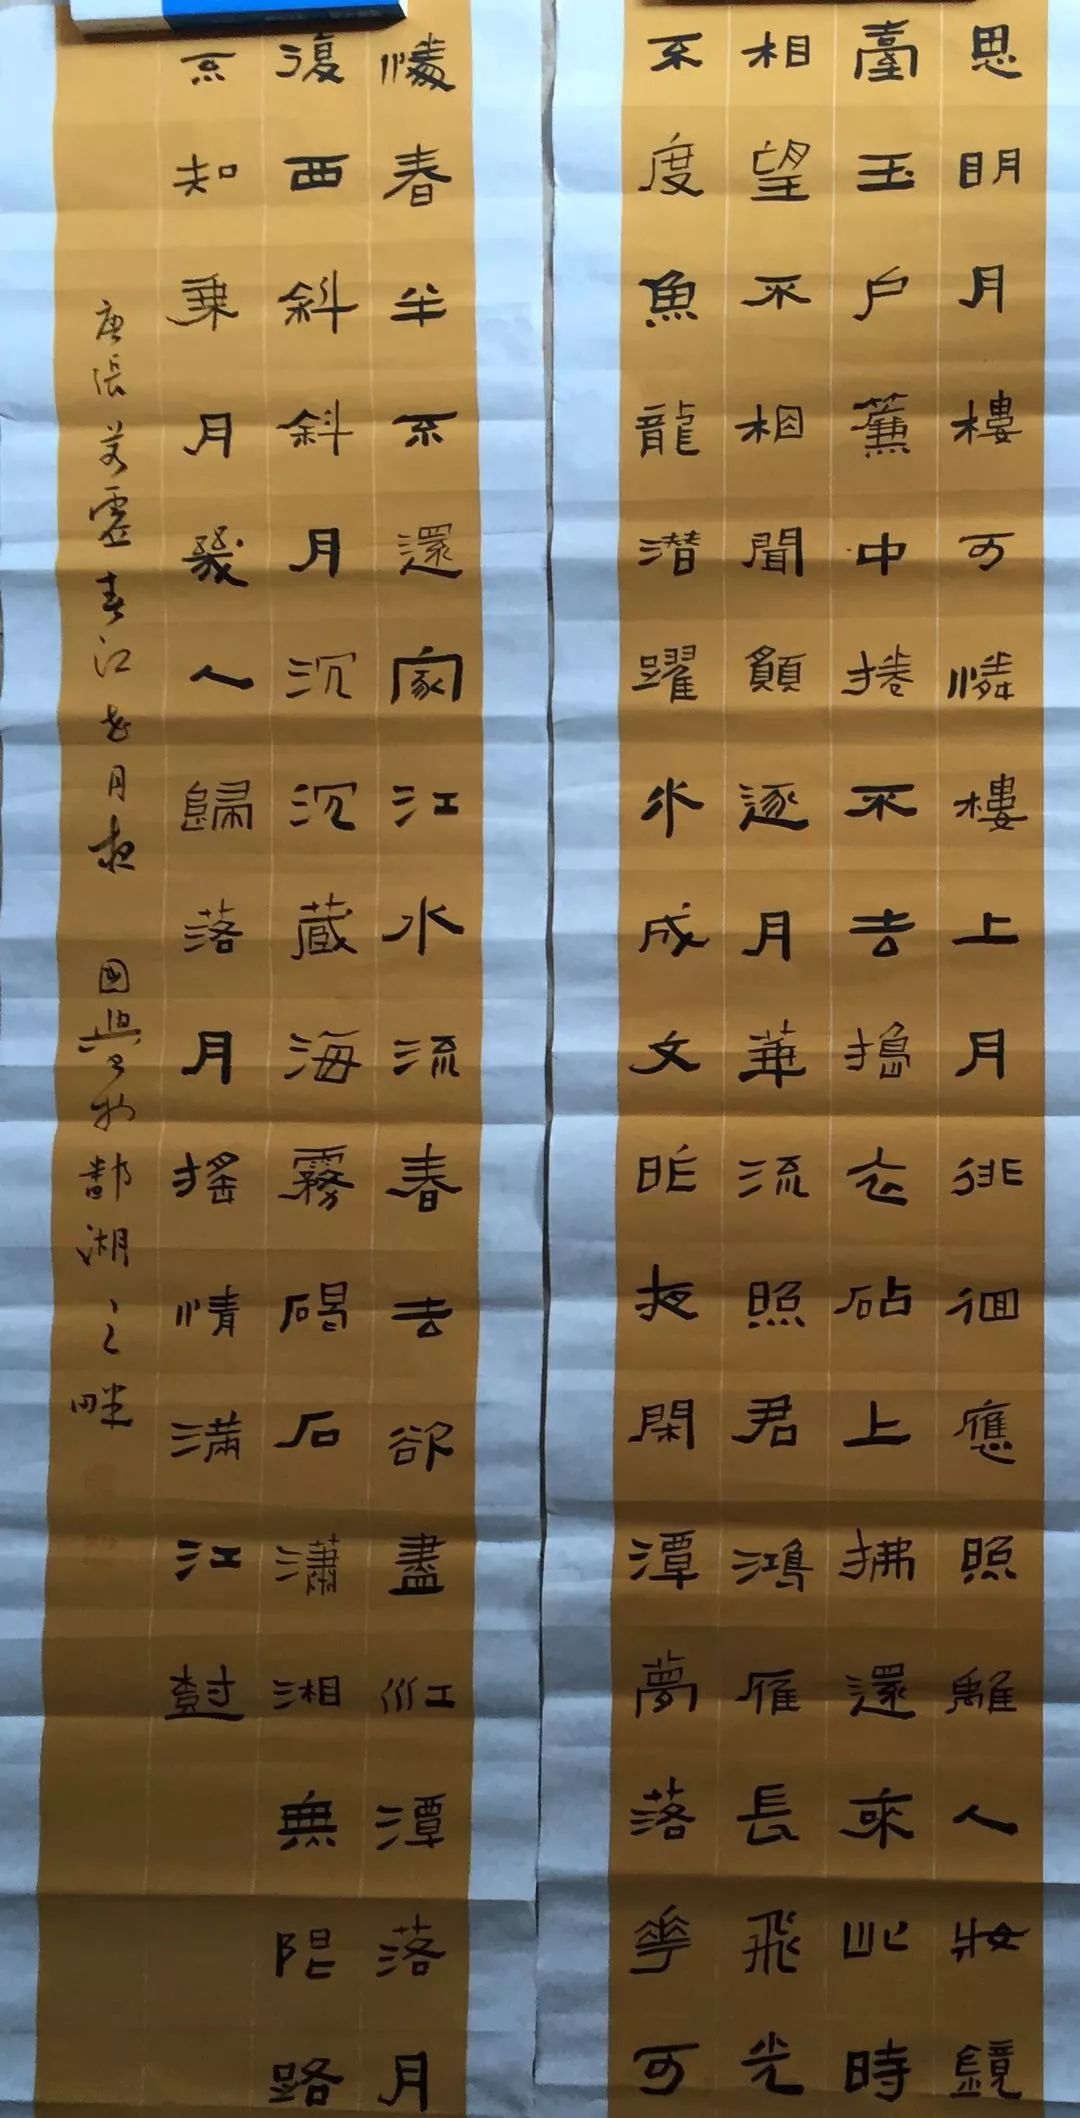 思明月樓可憐樓上月徘徊應照離人妝鏡
臺玉戶簾中捲不去搗衣砧上拂還來此時
相望不相聞願逐月華流照君鴻雁長飛光
不度魚龍潛躍水成文昨夜閑潭夢落花可
憐春半不還家江水流春去欲盡江潭落月
復西斜斜月沉沉藏海霧碣石瀟湘無限路
不知乘月幾人歸落月搖情滿江樹
唐張若虛春江花月夜 國興書於鄱湖之畔